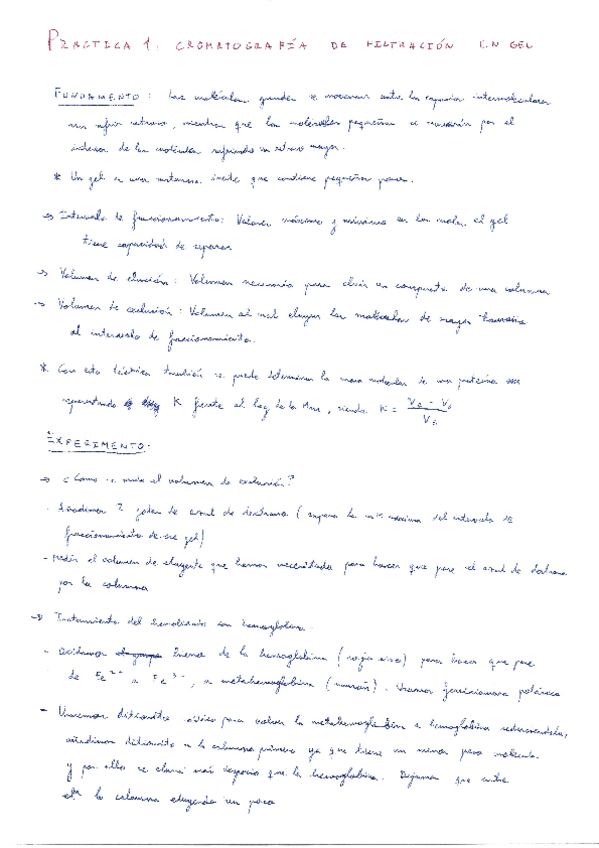 PRACTICA 1: CROMATOGRAFÍA DE FILTRACIÓN EN GEL
FUNDAMENTO: Las moléculas grandes se moveran entre los espacios intermoleculares
sin sufrir retraso, mientras que las moléculas pequeñas se moverán por el
interior de las moléculas sufriendo un retraso mayor.
* Un gel es una sustancia inerte que contiene pequeños poros.
→ Intervalo de fraccionamiento: Valores máximo y mínimo en los el gel
tiene capacidad de separar
→ Volumen de elución: Volumen necesario para eluir un compuesto de una columna
→ Volumen de exclusión: Volumen al cual eluyen las moléculas de mayor tamaño
al intervalo de fraccionamiento.
* Con esta técnica también se puede determinar la masa molecular de una proteína
representando K frente al log de la Mm, siendo K =
EXPERIMENTO:
→ ¿Cómo se mide el volumen de exclusión?
Anadimos 2 gotas de azul de dextrano ( supera la máxima del intervalo de
fraccionamiento de ese gel)
- medir el volumen de eluyente que hemos necesitado para hacer que pase el azul de dextrano
por la columna
→ Tratamiento del hemolizado con hemoglobina.
- Oxidamos hierro de la hemoglobina (rojo vivo) para hacer que pase
de Fe2+ a Fe3+, a metahemoglobina (marrón). Usamos ferricianuro potásico
- Usaremos ditionito sódico para volver la metahemoglobina a hemoglobina
añadimos ditionito a la columna primero ya que tiene un menor peso molecular
y por ello se eluirá más despacio que la hemoglobina. Dejamos que entre
la columna eluyendo un poco